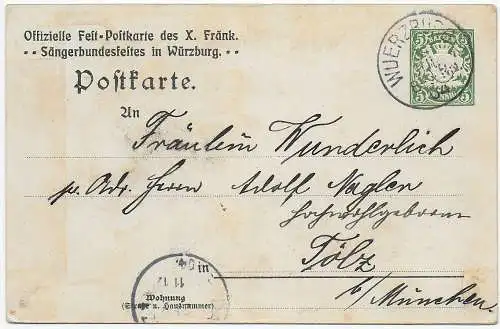 Offizielle Fest-Postkarte des X. Fränk.
·· Sängerbundesfestes in Würzburg. ··
WUERZBURG
5 5
Postkarte.
An
Fräulein Wunderlich
p. Adr. Herrn Adolf Nagler
Hochwohlgeboren
in Tölz
b/München
11
Wohnung
(Straße u. Hausnummer)